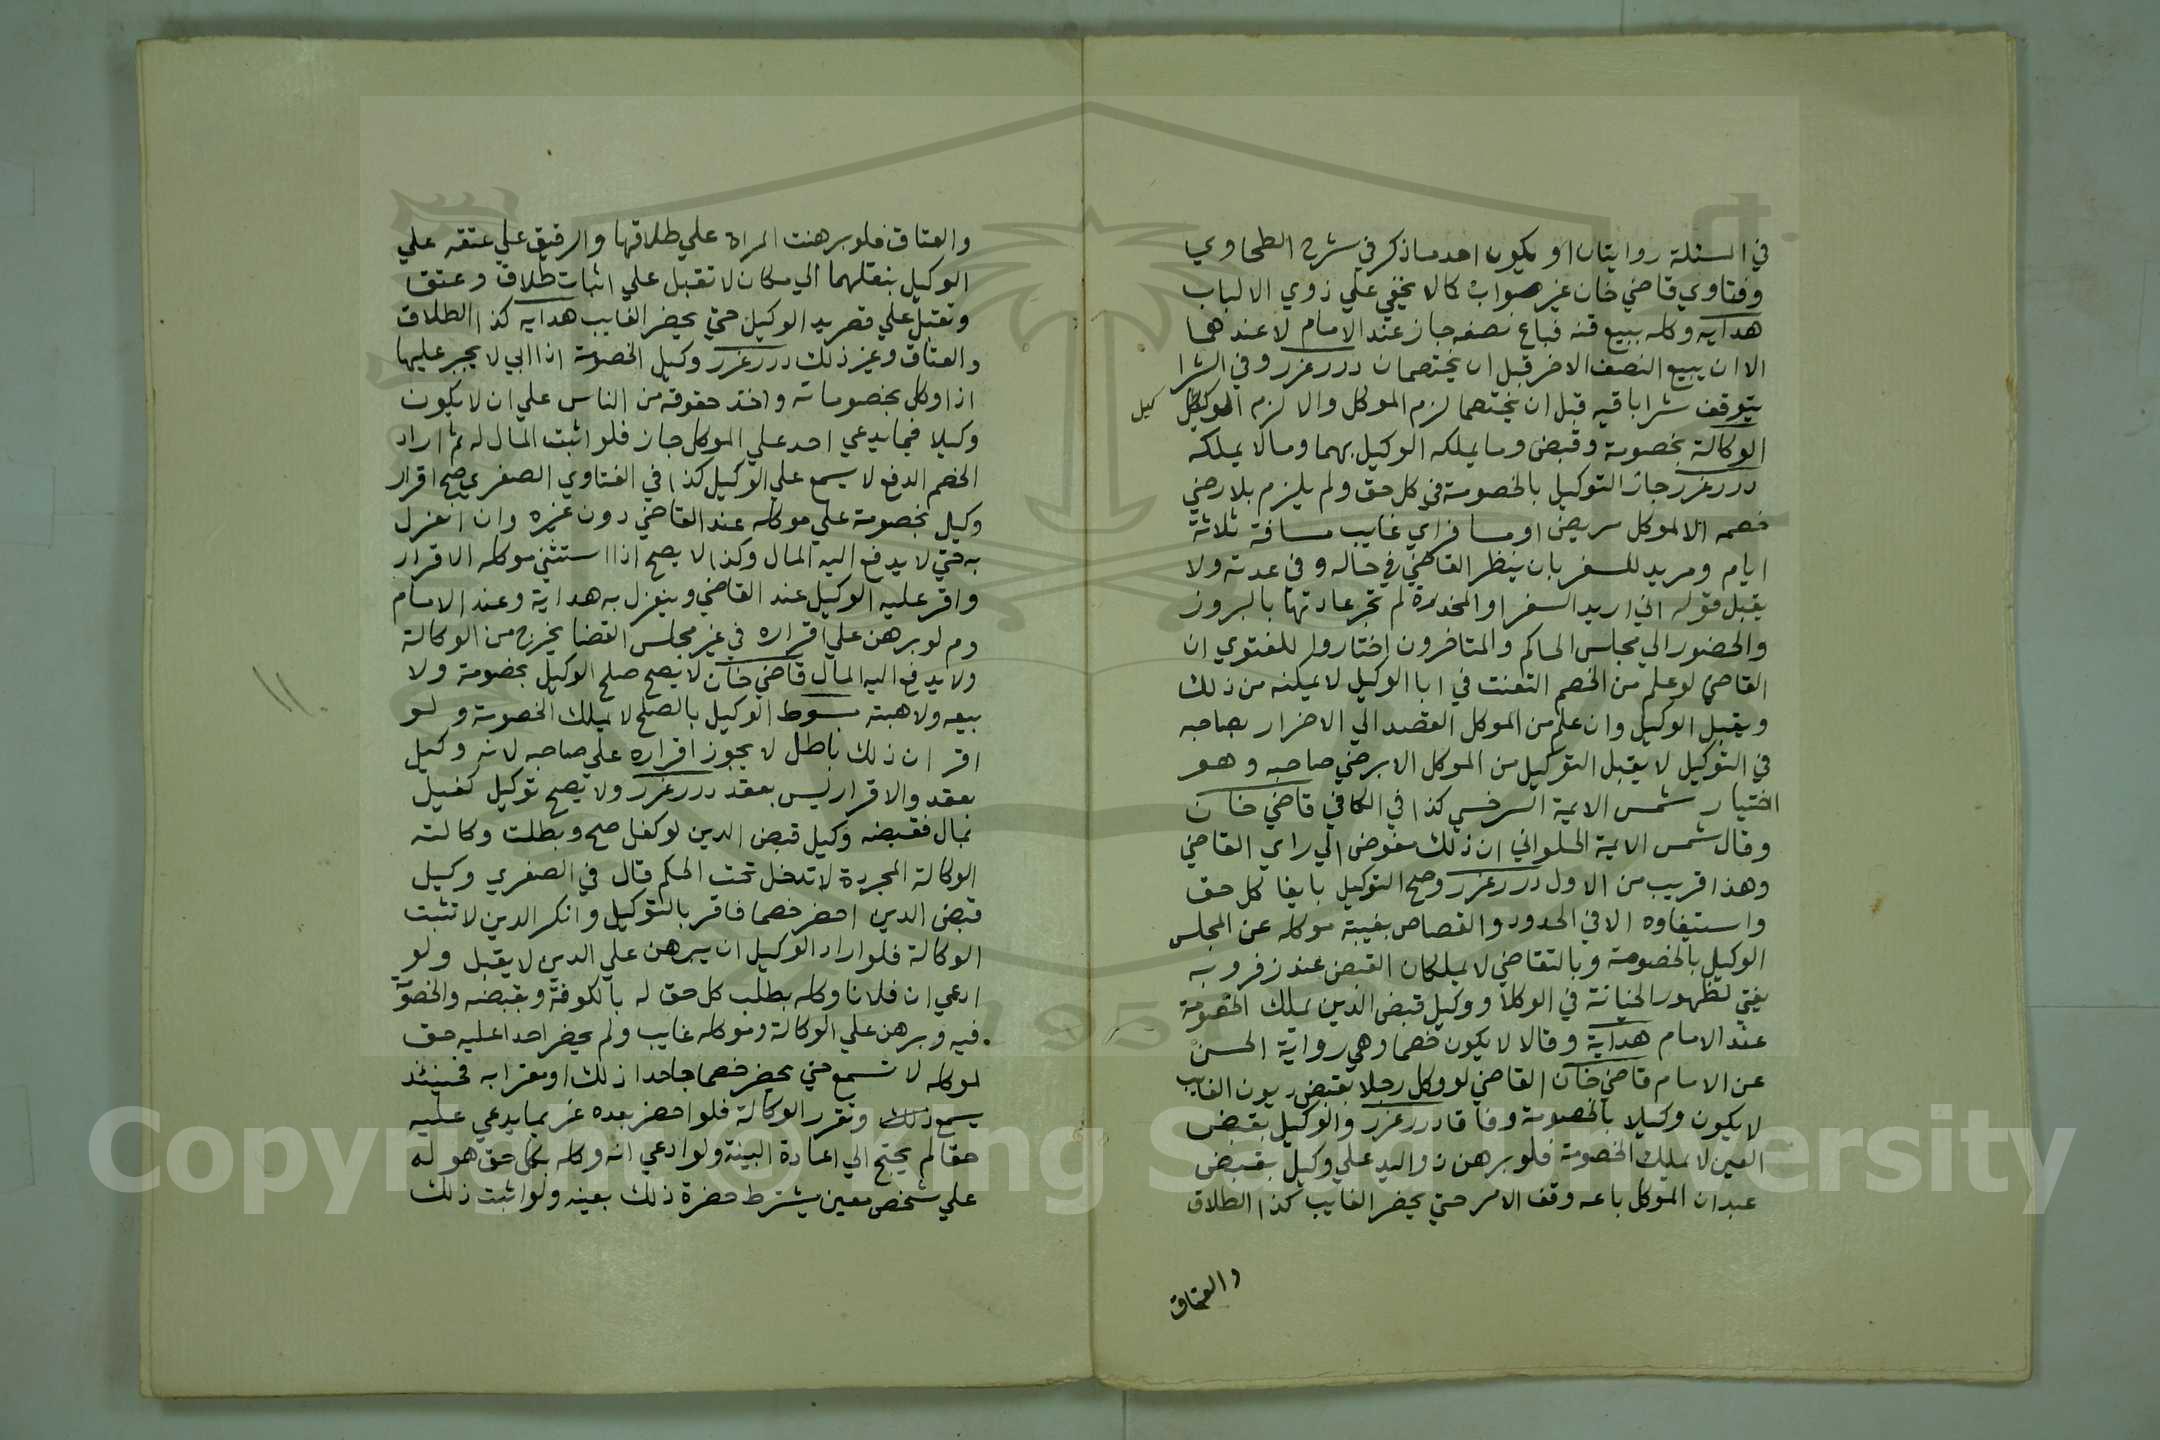 في المسئلة روايتان او يكون احد ما ذكر في شرح الطحاوي
وفتاوي قاضي خان غير صواب كما لا يخفي علي ذوي الالباب
هدايه وكله ببيع قنه فباع نصفه جاز عند الامام لا عندهما
الا ان يبيع النصف الاخر قبل ان يختصمان درر غرر وفي الشرا
يتوقف شرا باقيه قبل ان يختصما لزم الموكل والا لزم الوكيل
كيل
الوكالة بخصومة وقبض وما يملكه الوكيل بهما وما لا يملكه
درر غرر جاز التوكيل بالخصومة في كل حق ولم يلزم بلا رضي
خصمه الا لموكل مريض او مسافر اي غايب مسافة ثلاثة
ايام ومريد للسفر بان ينظر القاضي في حاله وفي عدته ولا
يقبل قوله اني اريد السفر او المخدرة لم تجر عادتها بالبروز
والحضور الي مجلس الحاكم والمتاخرون اختاروا للفتوي ان
القاضي لو علم من الخصم التعنت في ابا الوكيل لا يمكنه من ذلك
ويقبل الوكيل وان علم من الموكل القصد الي الاضرار بصاحبه
في التوكيل لا يقبل التوكيل من الموكل الا برضي صاحبه وهو
اختيار شمس الايمة السرخسي كذا في الكافي قاضي خان
وقال شمس الايمة الحلواني ان ذلك مفوض الي راي القاضي
وهذا قريب من الاول درر غرر وصح التوكيل بايفا كل حق
واستيفاوه الا في الحدود والقصاص بغيبة موكله عن المجلس
الوكيل بالخصومة وبالتقاضي لا يملكان القبض عند زفر وبه
يفتي لظهور الخيانة في الوكلا ووكيل قبض الدين يملك الخصومة
عند الامام هداية وقالا لا يكون خصما وهي رواية الحسن
عن الامام قاضي خان القاضي لو وكل رجلا بقبض ديون الغايب
لا يكون وكيلا بالخصومة وفاقا درر غرر والوكيل بقبض
العين لا يملك الخصومة فلو برهن ذو اليد علي وكيل بقبض
عبد ان الموكل باعه وقف الامر حتي يحضر الغايب كذا الطلاق
والعتاق
والعتاق فلو برهنت المراة علي طلاقها والرقيق علي عتقه علي
الوكيل بنقلهما الي مكان لا تقبل علي اثبات طلاق وعتق
وتقبل علي قصر يد الوكيل حتي يحضر الغايب هدايه كذا الطلاق
والعتاق وغير ذلك درر غرر وكيل الخصومة اذا ابي لا يجبر عليها
اذا وكل بخصوماته واخذ حقوقه من الناس علي ان لا يكون
وكيلا فيما يدعي احد علي الموكل جاز فلو اثبت المال له ثم اراد
الخصم الدفع لا يسمع علي الوكيل كذا في الفتاوي الصغري صح اقرار
وكيل بخصومة علي موكله عند القاضي دون غيره وان انعزل
به حتي لا يدفع اليه المال وكذا لا يصح اذا استثني موكله الاقرار
واقر عليه الوكيل عند القاضي وينعزل به هداية وعند الامام
وم لو برهن علي اقراره في غير مجلس القضا يخرج من الوكالة
ولا يدفع اليه المال قاضي خان لا يصح صلح الوكيل بخصومة ولا
بيعه ولا هبته مبسوط الوكيل بالصلح لا يملك الخصومة ولو
اقر ان ذلك باطل لا يجوز اقراره علي صاحبه لانه وكيل
بعقد والاقرار ليس بعقد درر غرر ولا يصح توكيل كفيل
بمال فقبضه وكيل قبض الدين لو كفل صح وبطلت وكالته
الوكالة المجردة لا تدخل تحت الحكم قال في الصغري وكيل
قبض الدين احضر خصما فاقر بالتوكيل وانكر الدين لا تثبت
الوكالة فلو اراد الوكيل ان يبرهن علي الدين لا يقبل ولو
ادعي ان فلانا وكله بطلب كل حق له بالكوفة وبقبضه والخصومة
فيه وبرهن علي الوكالة وموكله غايب ولم يحضر احدا عليه حق
لموكله لا تسمع حتي يحضر خصما جاحدا ذلك او مقرا به فحينئذ
يسمع ذلك وتقرر الوكالة فلو احضر بعده غريما يدعي عليه
حقا لم يحتج الي اعادة البينة ولو ادعي انه وكله بكل حق هو له
علي شخص معين يشترط حضرة ذلك بعينه ولو اثبت ذلك
Copyright © King Saud University
1957